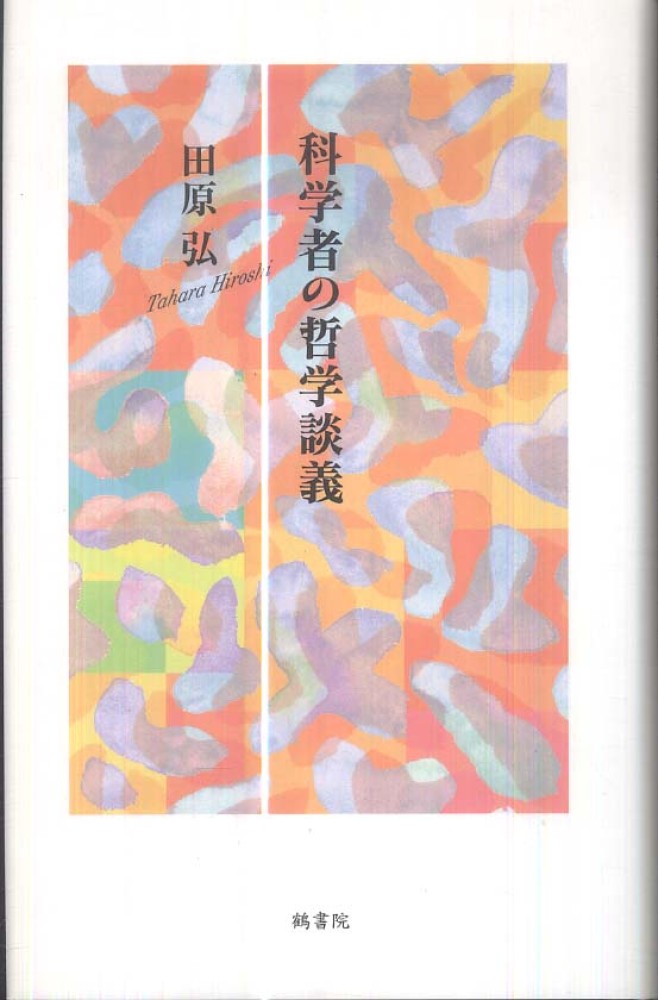 科学者の哲学談義
田原 弘
Tahara Hiroshi
鶴書院